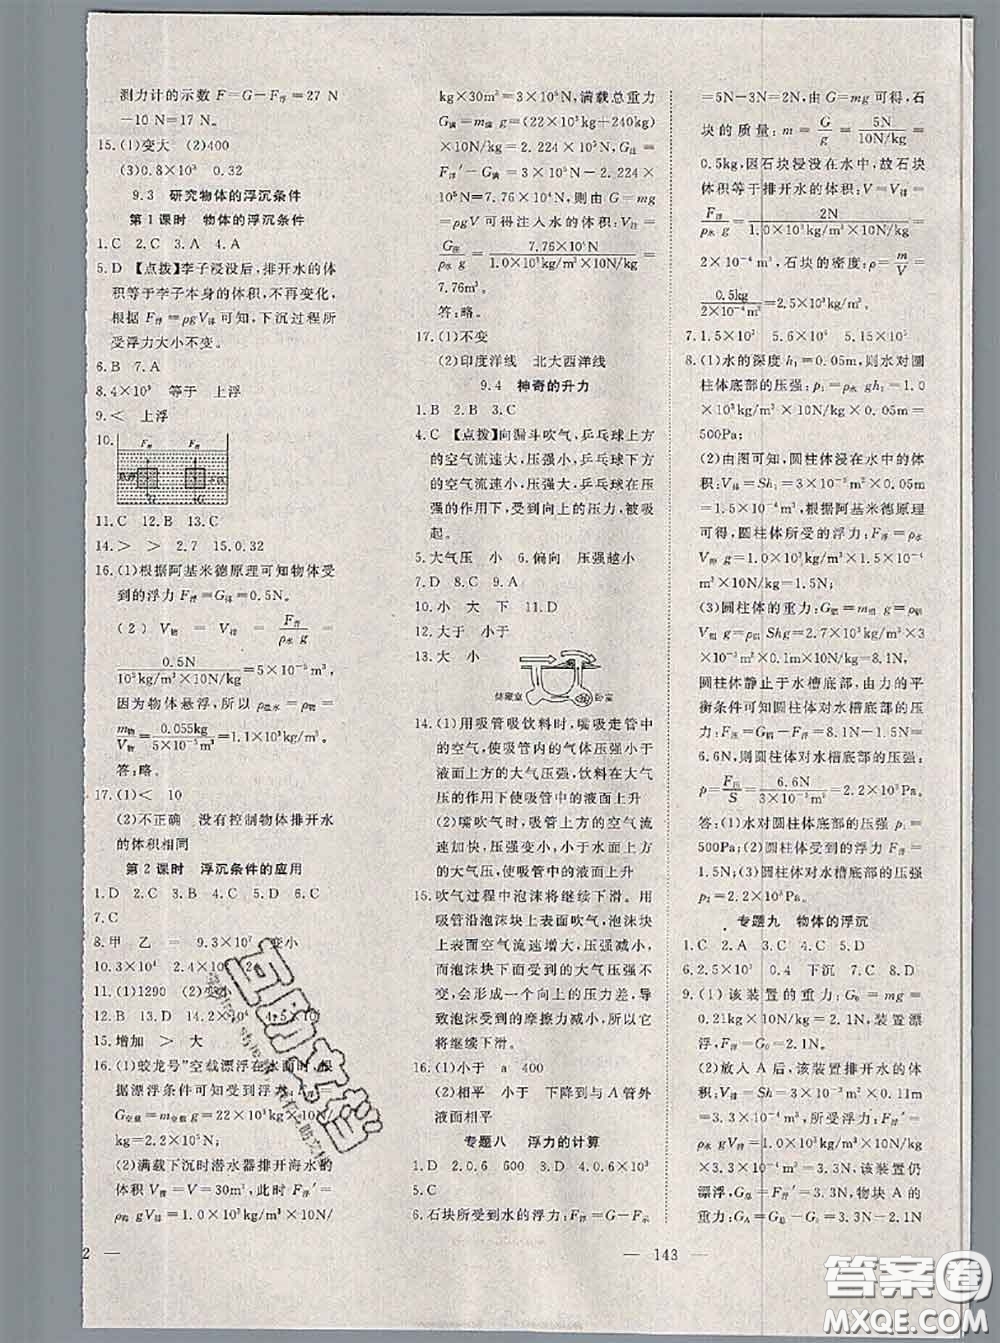 测力计的示数 F=G-F浮=27 N
-10 N=17 N。
15.(1)变大 (2)400
(3)0.8×10³ 0.32
9.3 研究物体的浮沉条件
第1课时 物体的浮沉条件
1.C 2.C 3.A 4.A
5.D 【点拨】李子浸没后,排开水的体
积等于李子本身的体积,不再变化,
根据 F浮=ρgV排可知,下沉过程所
受浮力大小不变。
6.B 7.A
8.4×10³ 等于 上浮
9.< 上浮
10.
F浮 F浮
G G
11.C 12.B 13.C
14.> > 2.7 15.0.32
16.(1)根据阿基米德原理可知物体受
到的浮力 F浮=G排=0.5N。
(2) V物 = V排 = F浮/ρ水 g =
0.5N/10³kg/m³×10N/kg=5×10⁻⁵m³,
因为物体悬浮,所以 ρ盐水=ρ物=
m物/V物=0.055kg/5×10⁻⁵m³=1.1×10³kg/m³。
答:略。
17.(1)< 10
(2)不正确 没有控制物体排开水
的体积相同
第2课时 浮沉条件的应用
1.D 2.C 3.B 4.D 5.C 6.C
7.C
8.甲 乙 = 9.3×10⁷ 变小
10.3×10⁴ 2.4×10⁴
11.(1)1290 (2)变小
12.B 13.D 14.2×10⁴ 4.5×10
15.增加 > 大
16.(1)“蛟龙号”空载漂浮在水面时,根
据漂浮条件可知受到浮力 F浮=
G空载=m空载 g=22×10³kg×10N/
kg=2.2×10⁵N;
(2)满载下沉时潜水器排开海水的
体积 V排=V=30m³,此时 F浮′=
ρ海 gV排=1.0×10³kg/m³×10N/
kg×30m³=3×10⁵N,满载总重力
G满=m满 g=(22×10³kg+240kg)
×10N/kg=2.224×10⁵N,G注=
F浮′-G满=3×10⁵N-2.224×
10⁵N=7.76×10⁴N,由 G=mg
=ρgV 可得注入水的体积:V注=
G注/ρ水 g=7.76×10⁴N/1.0×10³kg/m³×10N/kg=
7.76m³。
答:略。
17.(1)不变
(2)印度洋线 北大西洋线
9.4 神奇的升力
1.B 2.B 3.C
4.C 【点拨】向漏斗吹气,乒乓球上方
的空气流速大,压强小,乒乓球下方
的空气流速小,压强大,乒乓球在压
强的作用下,受到向上的压力,被吸
起。
5.大气压 小 6.偏向 压强越小
7.D 8.C 9.A
10.小 大 下 11.D
12.大于 小于
13.大 小
储藏室 卧室
14.(1)用吸管吸饮料时,嘴吸走管中
的空气,使吸管内的气体压强小于
液面上方的大气压强,饮料在大气
压的作用下使吸管中的液面上升
(2)嘴吹气时,吸管上方的空气流
速加快,压强变小,小于水面上方
的大气压,使吸管中的液面上升
15.吹气过程中泡沫将继续下滑。用
吸管沿泡沫块上表面吹气,泡沫块
上表面空气流速增大,压强减小,
而泡沫块下方的大气压强不变,
会形成一个向上的压力差,从而使
泡沫受到的摩擦力减小,所以它
将继续下滑。
16.(1)小于 a 400
(2)相平 小于 下降到与 A 管外
液面相平
专题八 浮力的计算
1.D 2.0.6 600 3.D 4.0.6×10³
5.C
6.石块所受到水的浮力:F浮=G-F示
=5N-3N=2N,由 G=mg 可得,石
块的质量:m=G/g=5N/10N/kg=
0.5kg,因石块浸没在水中,故石块
体积等于排开水的体积:V石=V排=
F浮/ρ水 g=2N/1.0×10³kg/m³×10N/kg=
2×10⁻⁴m³,石块的密度:ρ=m/V=
0.5kg/2×10⁻⁴m³=2.5×10³kg/m³。
7.1.5×10² 5.6×10⁴ 5.15×10⁵
8.(1)水的深度 h₁=0.05m,则水对圆
柱体底部的压强:p₁=ρ水 gh₁=1.0
×10³kg/m³×10N/kg×0.05m=
500Pa;
(2)由图可知,圆柱体浸在水中的体
积:V排=Sh₁=3×10⁻³m²×0.05m
=1.5×10⁻⁴m³,根据阿基米德原理
可得,圆柱体所受的浮力:F浮=ρ水
gV排=1.0×10³kg/m³×10N/kg×1.5×10⁻⁴
m³=1.5N;
(3)圆柱体的重力:G铝=m铝 g=ρ铝
V铝 g=ρ铝 Shg=2.7×10³kg/m³×
3×10⁻³m²×0.1m×10N/kg=8.1N,
圆柱体静止于水槽底部,由力的平
衡条件可知圆柱体对水槽底部的压
力:F压=G铝-F浮=8.1N-1.5N=
6.6N,则圆柱体对水槽底部的压强:
p=F压/S=6.6N/3×10⁻³m²=2.2×10³Pa。
答:(1)水对圆柱体底部的压强 p₁为
500Pa;(2)圆柱体受到的浮力 F浮=
1.5N;(3)圆柱体对水槽底部的压强
p₂=2.2×10³Pa。
专题九 物体的浮沉
1.C 2.A 3.C 4.C 5.D
6.2.5×10³ 0.4 下沉 7.C 8.D
9.(1)该装置的重力:G₀=mg=
0.21kg×10N/kg=2.1N,装置漂
浮,F浮=G₀=2.1N。
(2)放入 A 后,该装置排开水的体
积:V排=Sh=3×10⁻³m²×0.11m
=3.3×10⁻⁴m³,所受浮力:F浮′=
ρ水 gV排=1.0×10³kg/m³×10N/kg
×3.3×10⁻⁴m³=3.3N,该装置仍
漂浮,G总=F浮′=3.3N,物块 A 的
重力:G_A=G总-G₀=3.3N-2.1N
2 —
— 143 —
答案圈
MXQE.COM